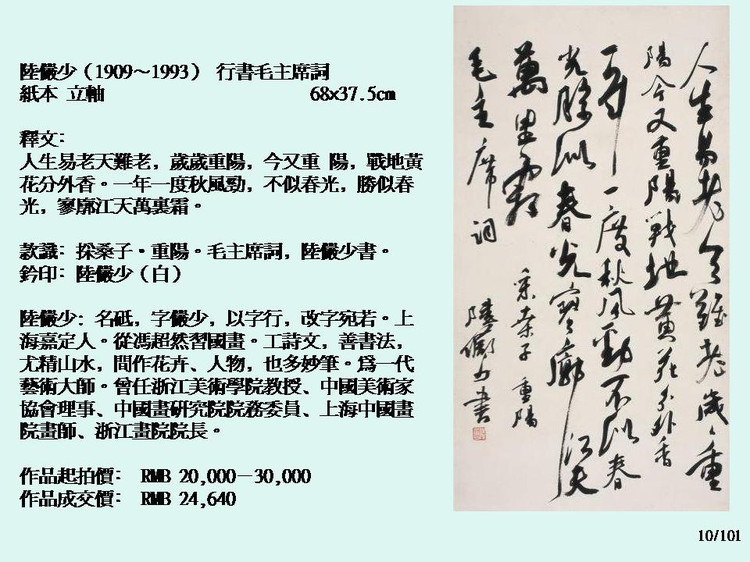 陸儼少（1909～1993） 行書毛主席詞
紙本 立軸 68x37.5cm
釋文：
人生易老天難老，歲歲重陽，今又重 陽，戰地黃
花分外香。一年一度秋風勁，不似春光，勝似春
光，寥廓江天萬裏霜。
款識：採桑子·重陽。毛主席詞，陸儼少書。
鈐印：陸儼少（白）
陸儼少：名砥，字儼少，以字行，改字宛若。上
海嘉定人。從馮超然習國畫。工詩文，善書法，
尤精山水，間作花卉、人物，也多妙筆。爲一代
藝術大師。曾任浙江美術學院教授、中國美術家
協會理事、中國畫研究院院務委員、上海中國畫
院畫師、浙江畫院院長。
作品起拍價： RMB 20,000－30,000
作品成交價： RMB 24,640
人生易老天難老歲〻重
陽今又重陽戰地黃花分外香
一年一度秋風勁不似春
光勝似春光寥廓江天
萬里霜
毛主席詞
采桑子 重陽
陸儼少書
10/101